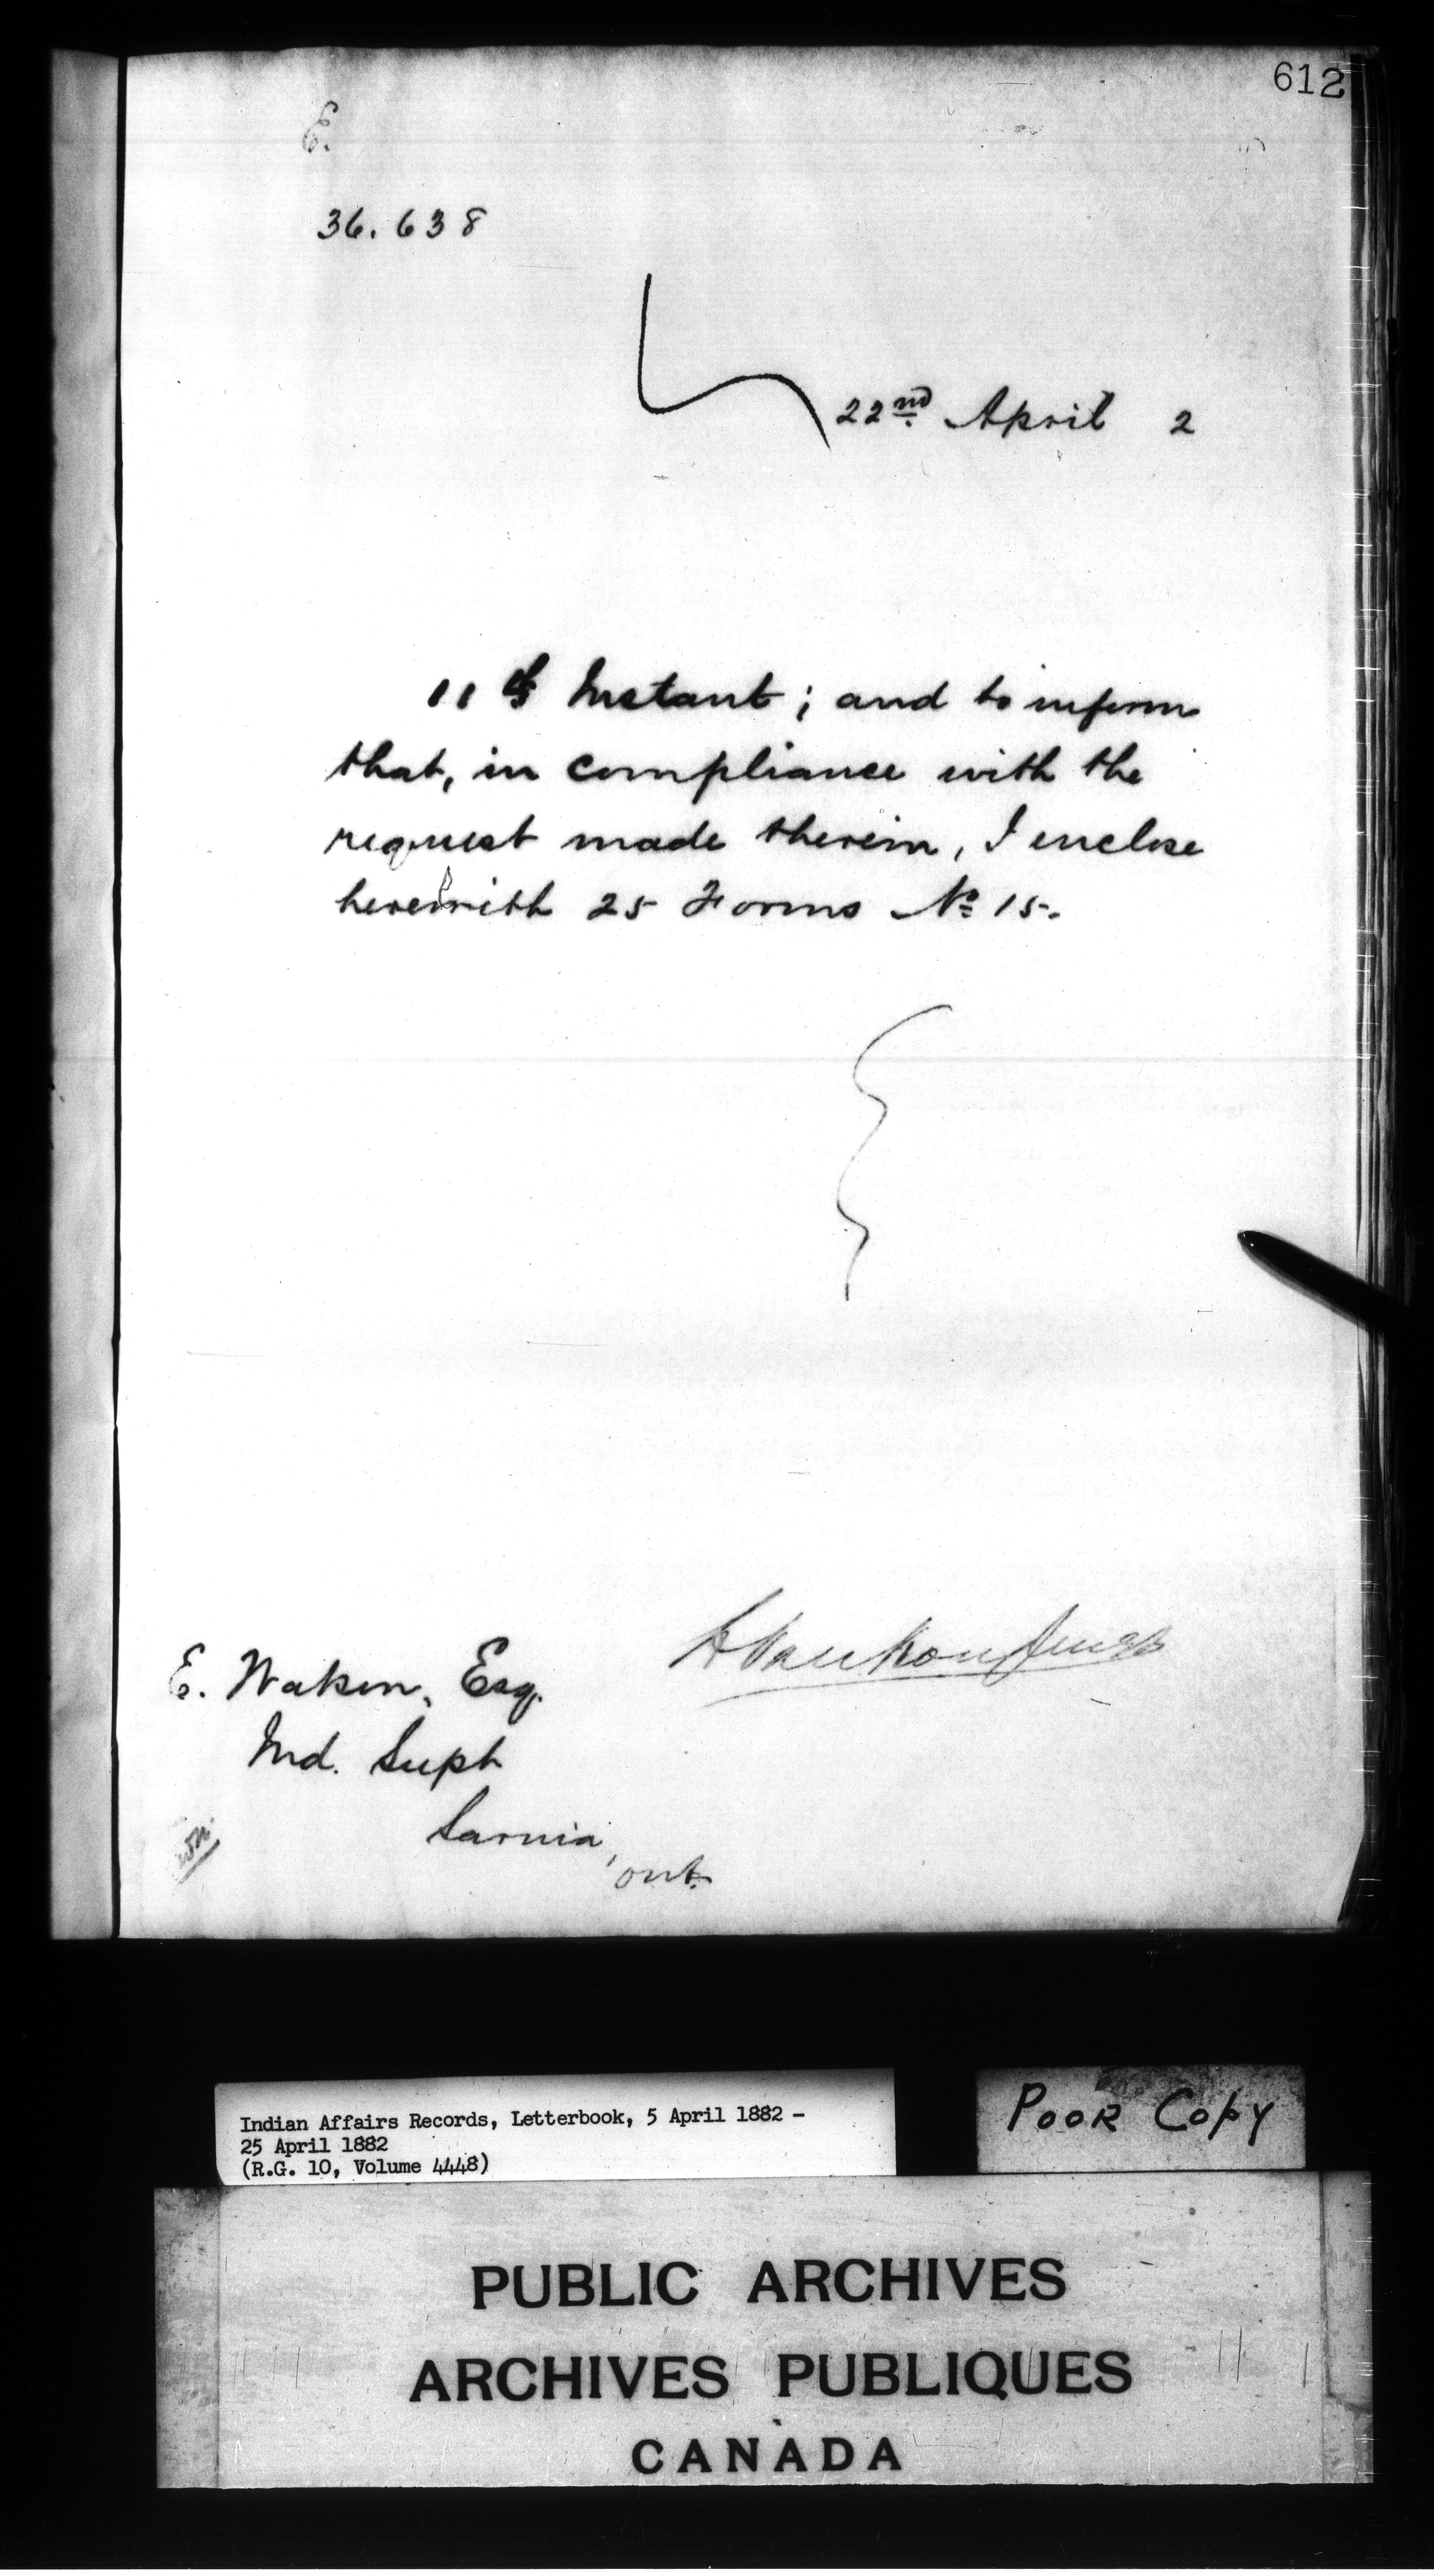 612
E.
36.638
22nd April 2
11th Instant; and to inform
that, in compliance with the
request made therein, I enclose
herewith 25 Forms No 15.
L VanKoughnet
E. Watson, Esq.
Ind. Supt
Sarnia,
Ont.
Indian Affairs Records, Letterbook, 5 April 1882 -
25 April 1882
(R.G. 10, Volume 4448)
POOR COPY
PUBLIC ARCHIVES
ARCHIVES PUBLIQUES
CANADA